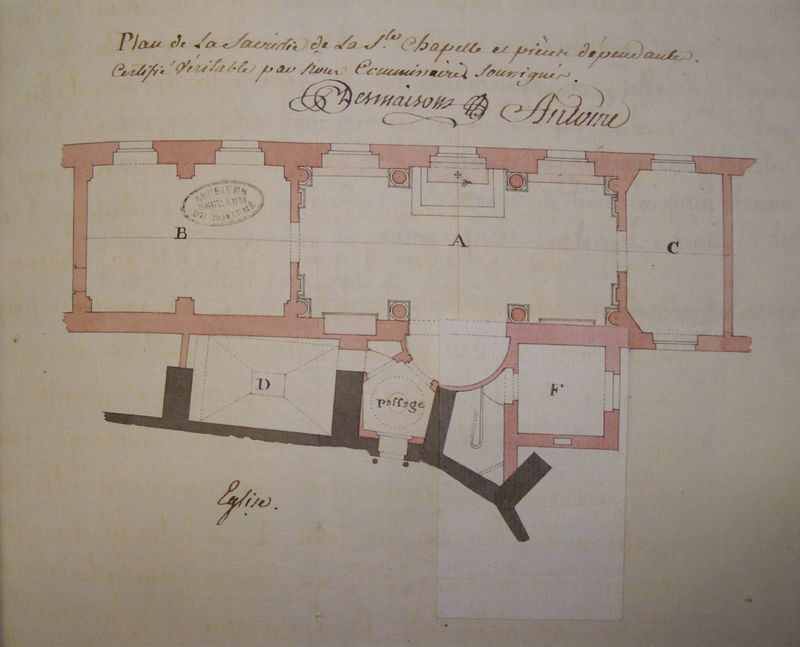 Plan de La Sacristie de La S.te Chapelle et pièces dépendantes.
Certifié Véritable par Nous Commissaires soussignés.
Desmaisons Antoine
B
A
C
D
Passage
F
Eglise.